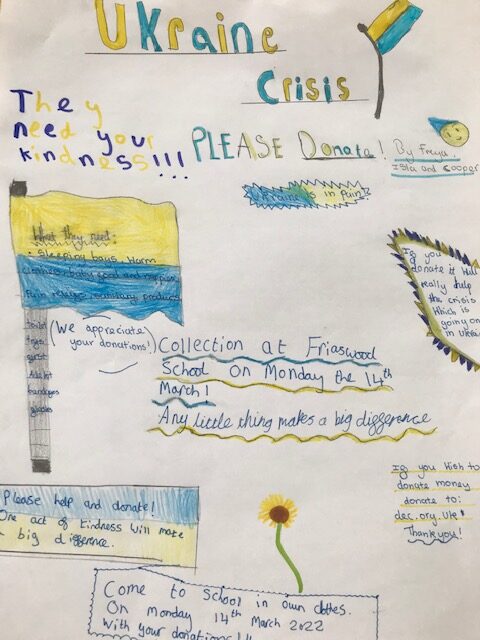 Ukraine
Crisis
They
need your
kindness!!!
PLEASE Donate!
By Freya
Isla and Cooper
Ukraine is in pain!
What they need:
• Sleeping bags. Warm
clothes. baby food and nappies
Pain relief. sanitary products
(We appreciate
your donations!)
If you
donate it will
really help
the crisis
Which is
going on
in Ukrai
Collection at Friaswood
School on Monday the 14th
March!
Any little thing makes a big difference
If you Wish to
donate money
donate to:
dec.org.uk!
Thank you!
Please help and donate!
One act of kindness will make
a big difference.
Come to School in own clothes.
On monday 14th March 2022
With your donations!!